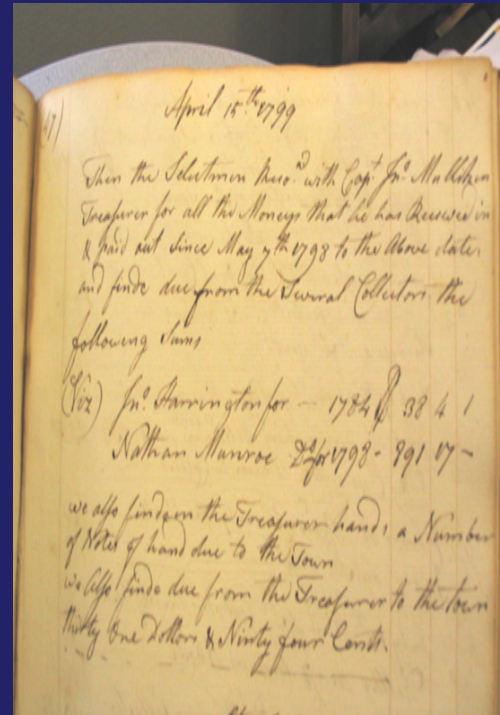 April 15th 1799
Then the Selectmen Reco.d with Capt Jno. Mulliken
Treasurer for all the Moneys that he has Received in
& paid out Since May 7th 1798 to the Above date
and finde due from the Several Collectors the
following Sums
(Viz) Jno. Harrington for - 1784 38 4 1
Nathan Munroe Do for 1798 - 891 17 -
we also finde in the Treasurer hands a Number
of Notes of hand due to the Town
we Also finde due from the Treasurer to the town
thirty One Dollors & Ninty four Cents.